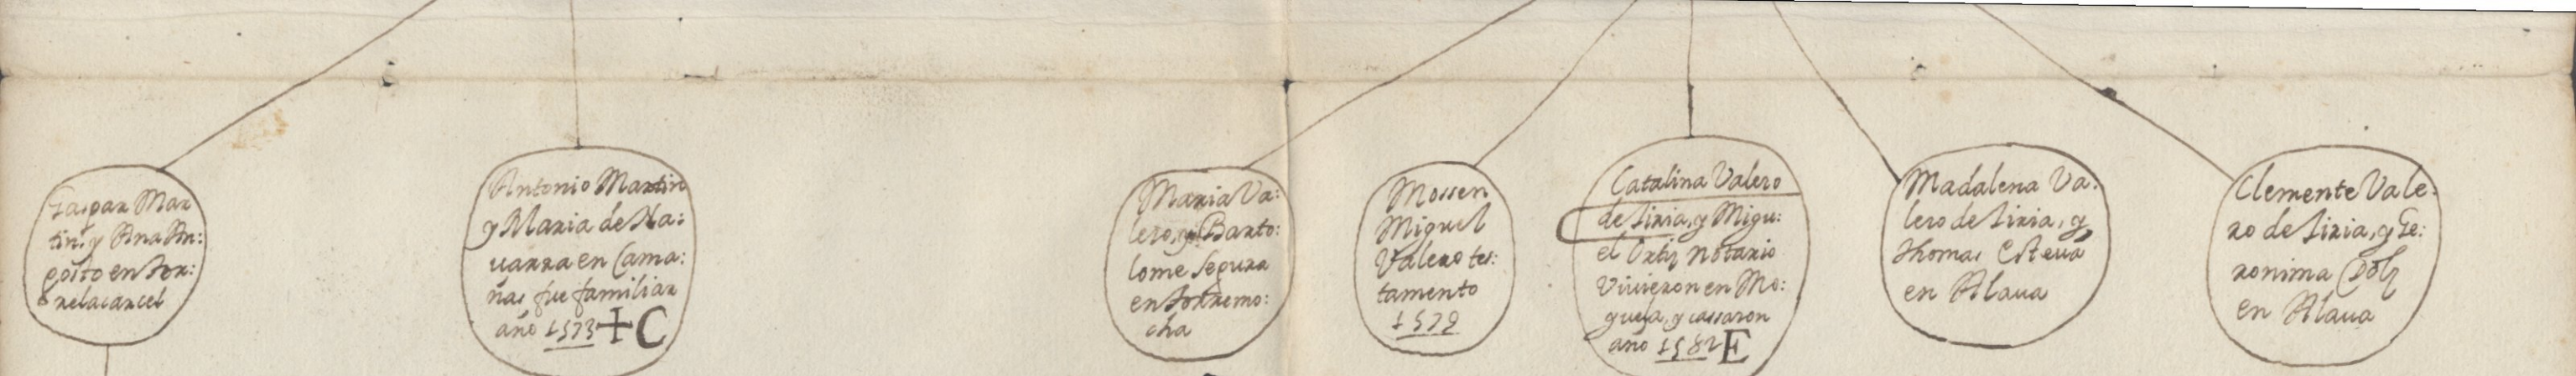 Gaspar Mar
tin, y Ana An:
posito en Tor:
relacarcel
Antonio Martin
y Maria de Na:
uarra en Cama:
ñas fue familiar
año 1573 + C
Maria Va:
lero, y Barto:
lome Segura
en Torremo:
cha
Mossen
Miguel
Valero tes:
tamento
1579
Catalina Valero
de Liria, y Migu:
el Ortiz Notario
Viuieron en Mo:
y cassaron
año 1582 E
Madalena Va:
lero de Liria, y
Thomas Esteua
en Alaua
Clemente Vale:
ro de Liria, y Ge:
ronima Dolz
en Alaua